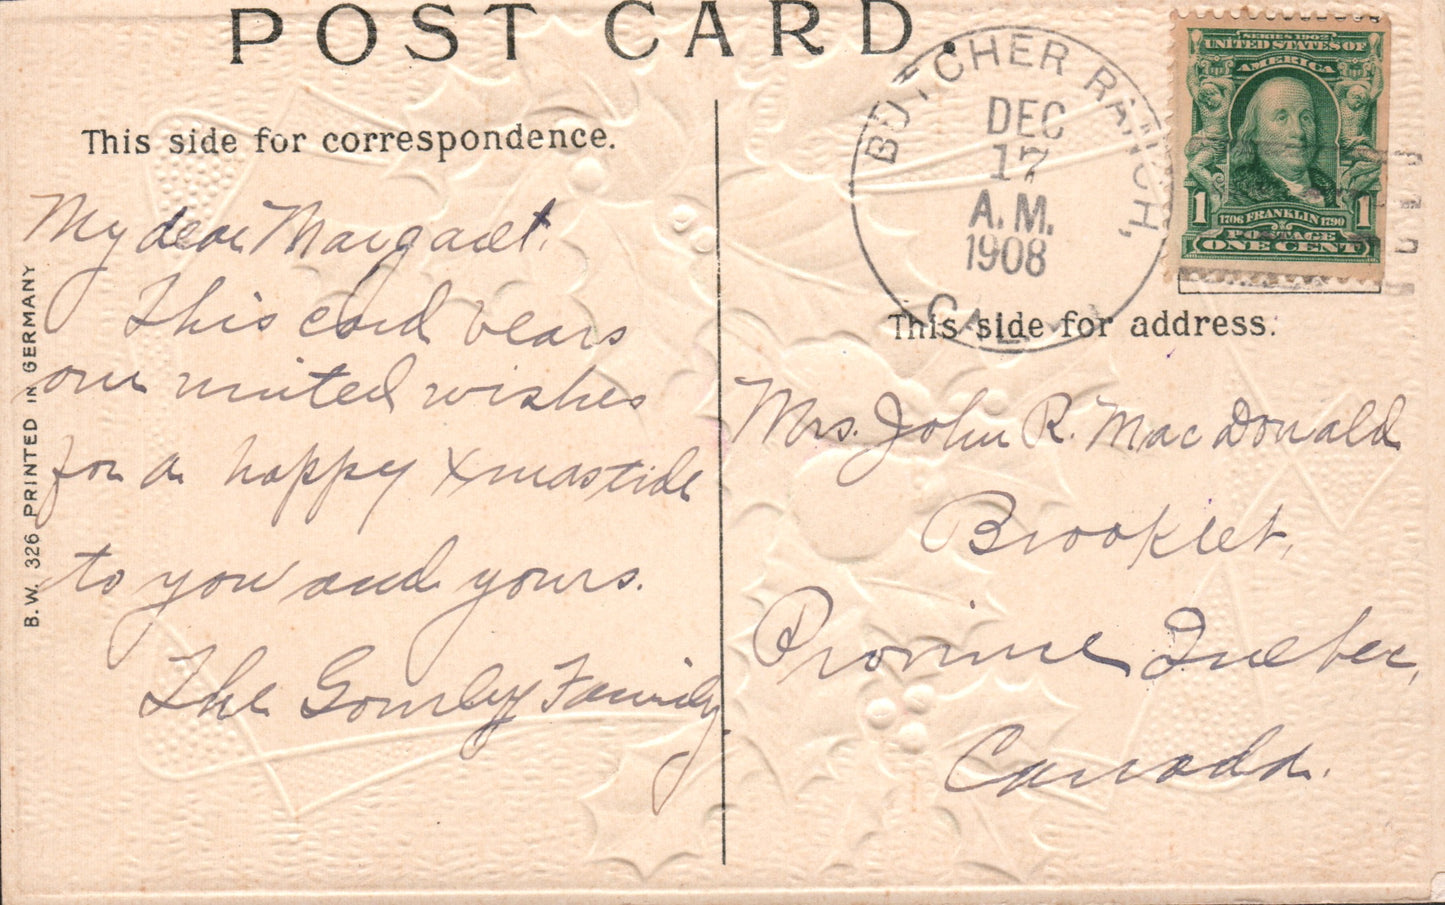 POST CARD.
This side for correspondence.
My dear Margaret.
This card bears
our united wishes
for a happy Xmastide
to you and yours.
The Gourley Family
B.W. 326 PRINTED IN GERMANY
BUTCHER RANCH,
DEC
17
A.M.
1908
CAL.
SERIES 1902
UNITED STATES OF
AMERICA
1 1706 FRANKLIN 1790 1
POSTAGE
ONE CENT
This side for address.
Mrs. John R. MacDonald
Brooklet,
Province Quebec,
Canada.